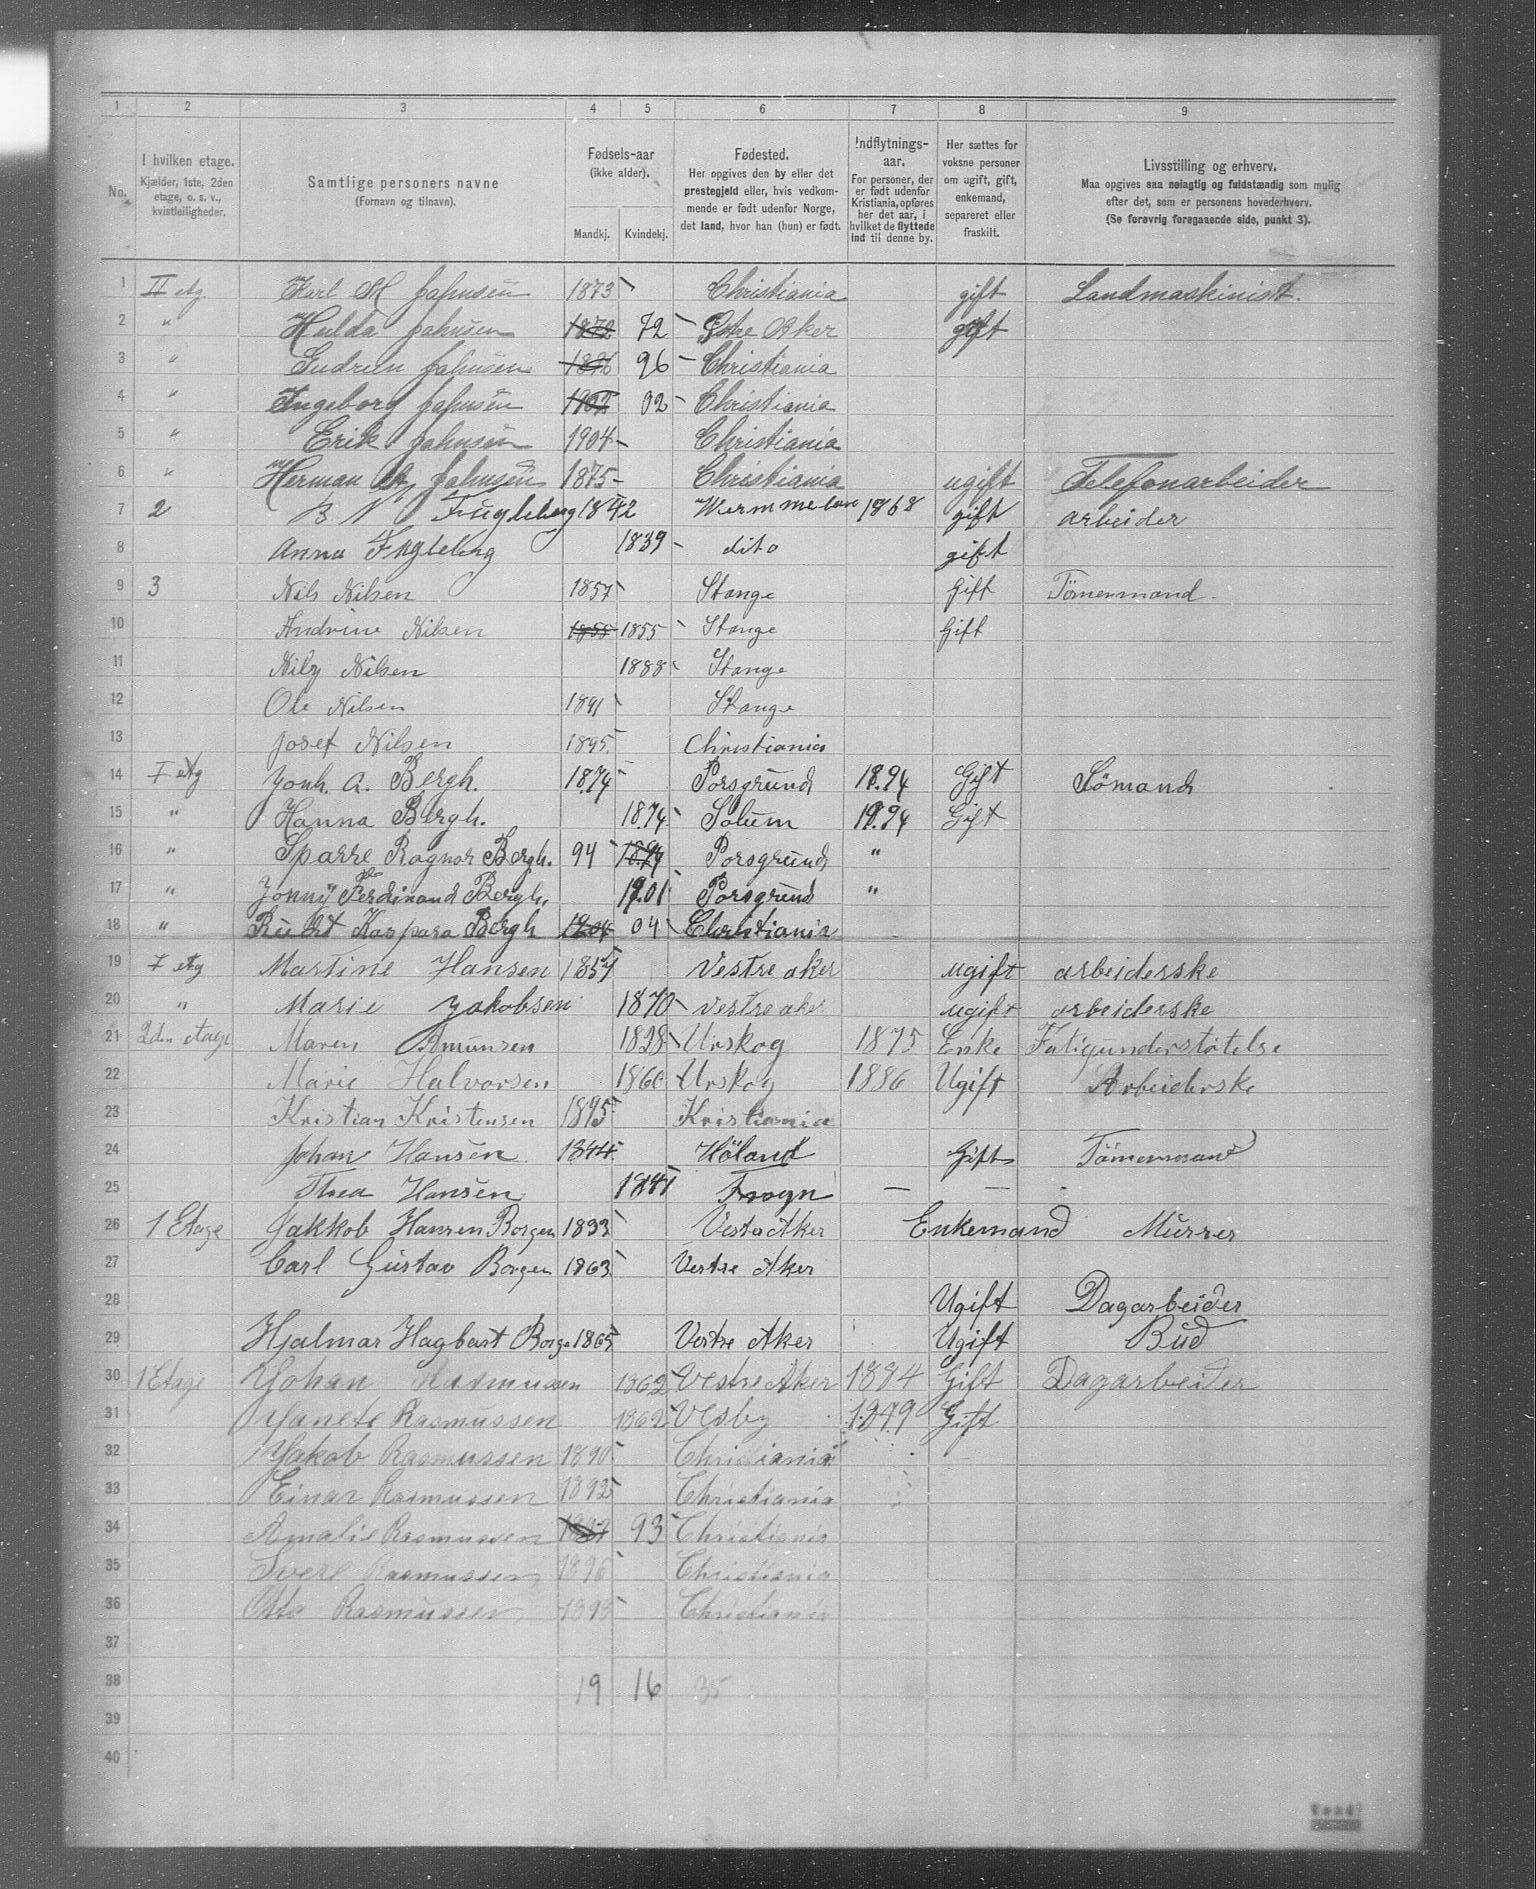 1 2 3 4 5 6 7 8 9
No.
I hvilken etage.
Kjælder, 1ste, 2den
etage, o. s. v.,
kvistleiligheder.
Samtlige personers navne
(Fornavn og tilnavn).
Fødsels-aar
(ikke alder).
Mandkj. Kvindekj.
Fødested.
Her opgives den by eller det
prestegjeld eller, hvis vedkom-
mende er født udenfor Norge,
det land, hvor han (hun) er født.
Indflytnings-
aar.
For personer, der
er født udenfor
Kristiania, opføres
her det aar, i
hvilket de flyttede
ind til denne by.
Her sættes for
voksne personer
om ugift, gift,
enkemand,
separeret eller
fraskilt.
Livsstilling og erhverv.
Maa opgives saa nøiagtig og fuldstændig som mulig
efter det, som er personens hovederhverv.
(Se forøvrig foregaaende side, punkt 3).
1 II etg Karl M Jahnsen 1873 Christiania gift Landmaskinist.
2 " Hulda Jahnsen 1872 72 Østre Aker gift
3 " Gudrun Jahnsen 1896 96 Christiania
4 " Ingeborg Jahnsen 1902 02 Christiania
5 " Erik Jahnsen 1904 Christiania
6 " Herman Jahnsen 1875 Christiania ugift Telefonarbeider
7 2 B N Fugleberg 1842 1868 gift arbeider
8 Anna 1839 dito gift
9 3 Nils Nilsen 1857 Stange Gift Tömermand
10 Andrine Nilsen 1855 1855 Stange Gift
11 Nilz Nilsen 1888 Stange
12 Ole Nilsen 1891 Stange
13 Josef Nilsen 1895 Christiania
14 I etg Jonh. A. Bergh. 1874 Porsgrund 1894 Gift Sömand
15 " Hanna Bergh. 1874 Solum 1894 Gift
16 " Sparre Ragnar Bergh. 94 1894 Porsgrund "
17 " Jonny Ferdinand Bergh. 1901 Porsgrund "
18 " Kaspara Bergh 1904 04 Christiania
19 I etg Martine Hansen 1857 Vestre aker ugift arbeiderske
20 " Marie Jakobsen 1870 Vestre aker ugift arbeiderske
21 2den etage Maren Amunsen 1828 Urskog 1875 Enke Fatigunderstøtelse
22 Marie Halvorsen 1860 Urskog 1886 Ugift Arbeiderske
23 Kristian Kristensen 1895 Kristiania
24 Johan Hansen 1844 Höland Gift Tömermand
25 Thea Hansen 1841 Frogn — —
26 1 Etage Jakkob Hansen Borgen 1833 Vestre Aker Enkemand Murrer
27 Carl Gustav Borgen 1863 Vestre Aker
28 Ugift Dagarbeider
29 Hjalmar Hagbart Borge 1865 Vestre Aker Ugift Bud
30 1 Etage Johan Rasmussen 1862 Vestre Aker 1884 Gift Dagarbeider
31 Janete Rasmussen 1862 Vesby 1879 Gift
32 Jakob Rasmussen 1890 Christiania
33 Einar Rasmussen 1892 Christiania
34 Amalie Rasmussen 93 Christiania
35 Svere Rasmussen 1896 Christiania
36 Otto Rasmussen 1898 Christiania
37
38 19 16 35
39
40